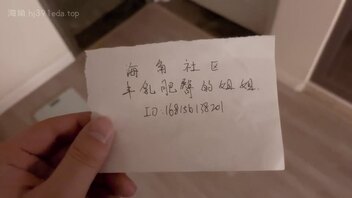 海角 hj391eda.top
海角社区
丰乳肥臀的姐姐
ID:168156138201